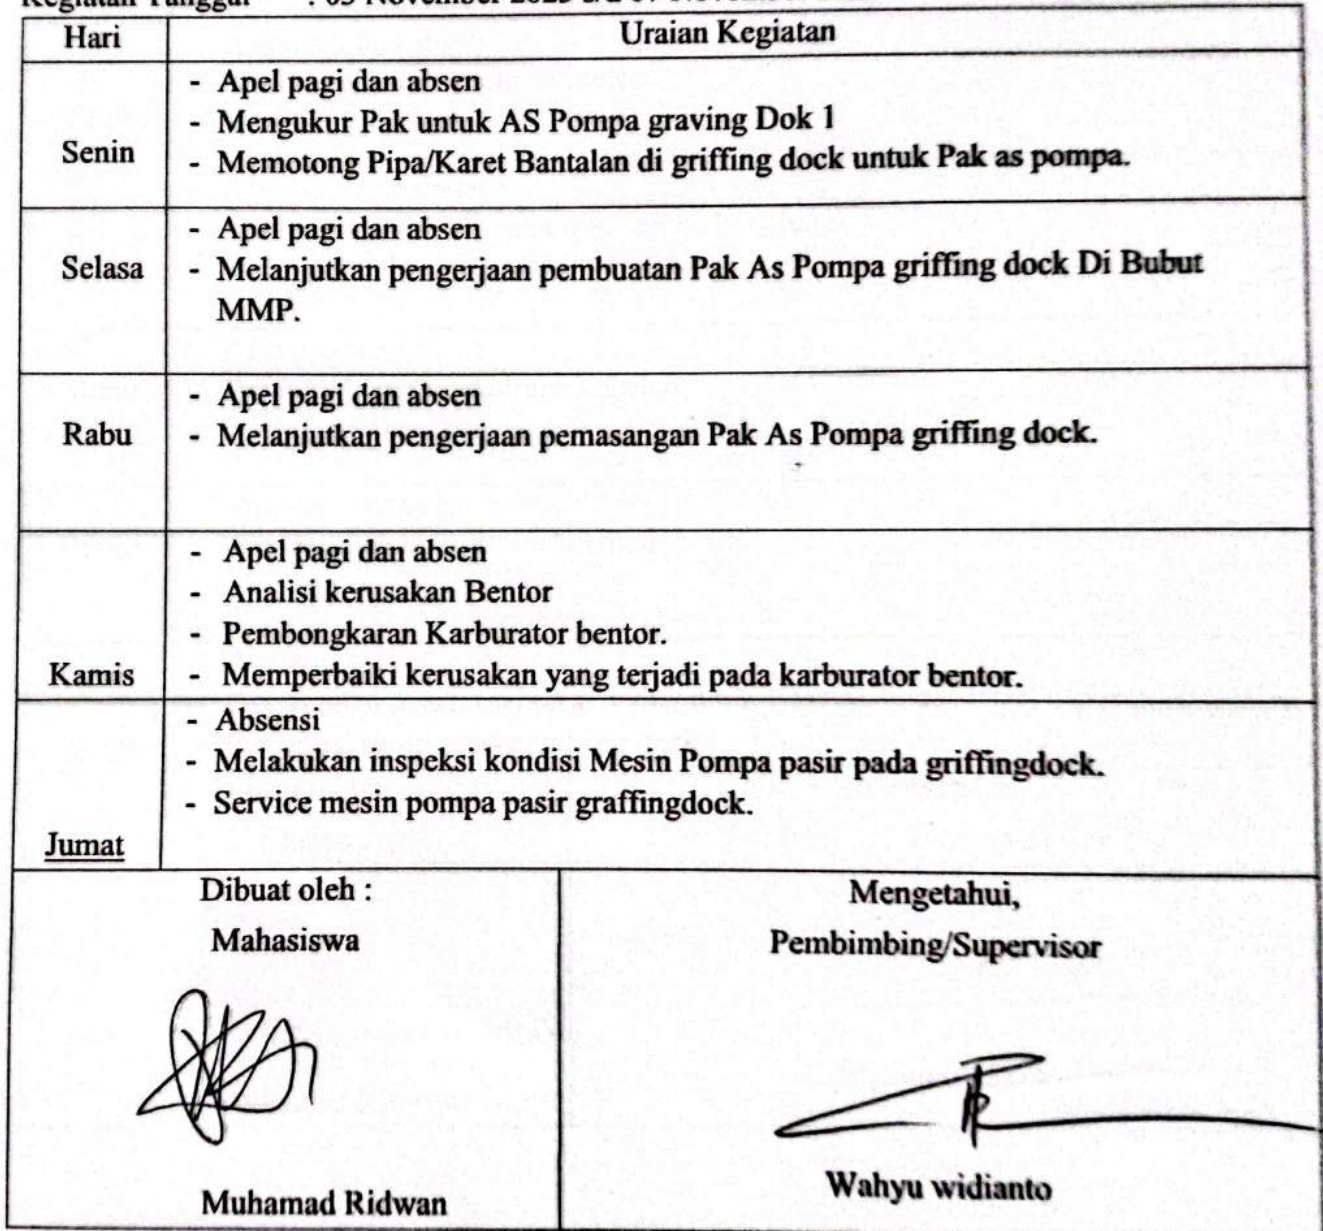 Hari
Uraian Kegiatan
Senin
- Apel pagi dan absen
- Mengukur Pak untuk AS Pompa graving Dok 1
- Memotong Pipa/Karet Bantalan di griffing dock untuk Pak as pompa.
Selasa
- Apel pagi dan absen
- Melanjutkan pengerjaan pembuatan Pak As Pompa griffing dock Di Bubut
MMP.
Rabu
- Apel pagi dan absen
- Melanjutkan pengerjaan pemasangan Pak As Pompa griffing dock.
Kamis
- Apel pagi dan absen
- Analisi kerusakan Bentor
- Pembongkaran Karburator bentor.
- Memperbaiki kerusakan yang terjadi pada karburator bentor.
Jumat
- Absensi
- Melakukan inspeksi kondisi Mesin Pompa pasir pada griffingdock.
- Service mesin pompa pasir graffingdock.
Dibuat oleh :
Mahasiswa
Muhamad Ridwan
Mengetahui,
Pembimbing/Supervisor
Wahyu widianto